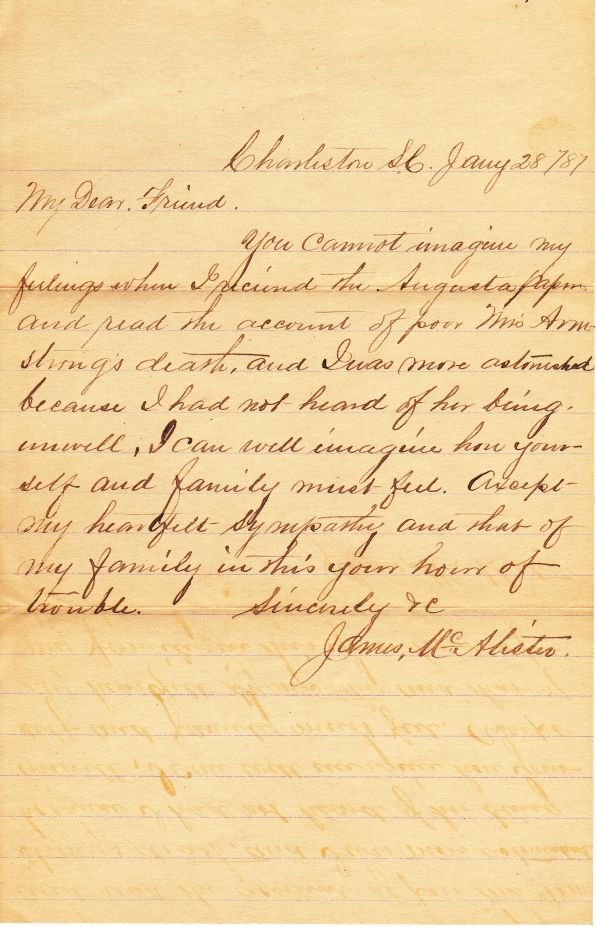 Charleston S.C. Jany 28/87
My Dear Friend.
You cannot imagine my
feelings when I recieved the Augusta paper
and read the account of poor Mrs Arm-
strong's death, and I was more astonished
because I had not heard of her being
unwell, I can well imagine how your-
self and family must feel. Accept
my heartfelt sympathy and that of
my family in this your hour of
trouble. Sincerely &c
James, McAlister.